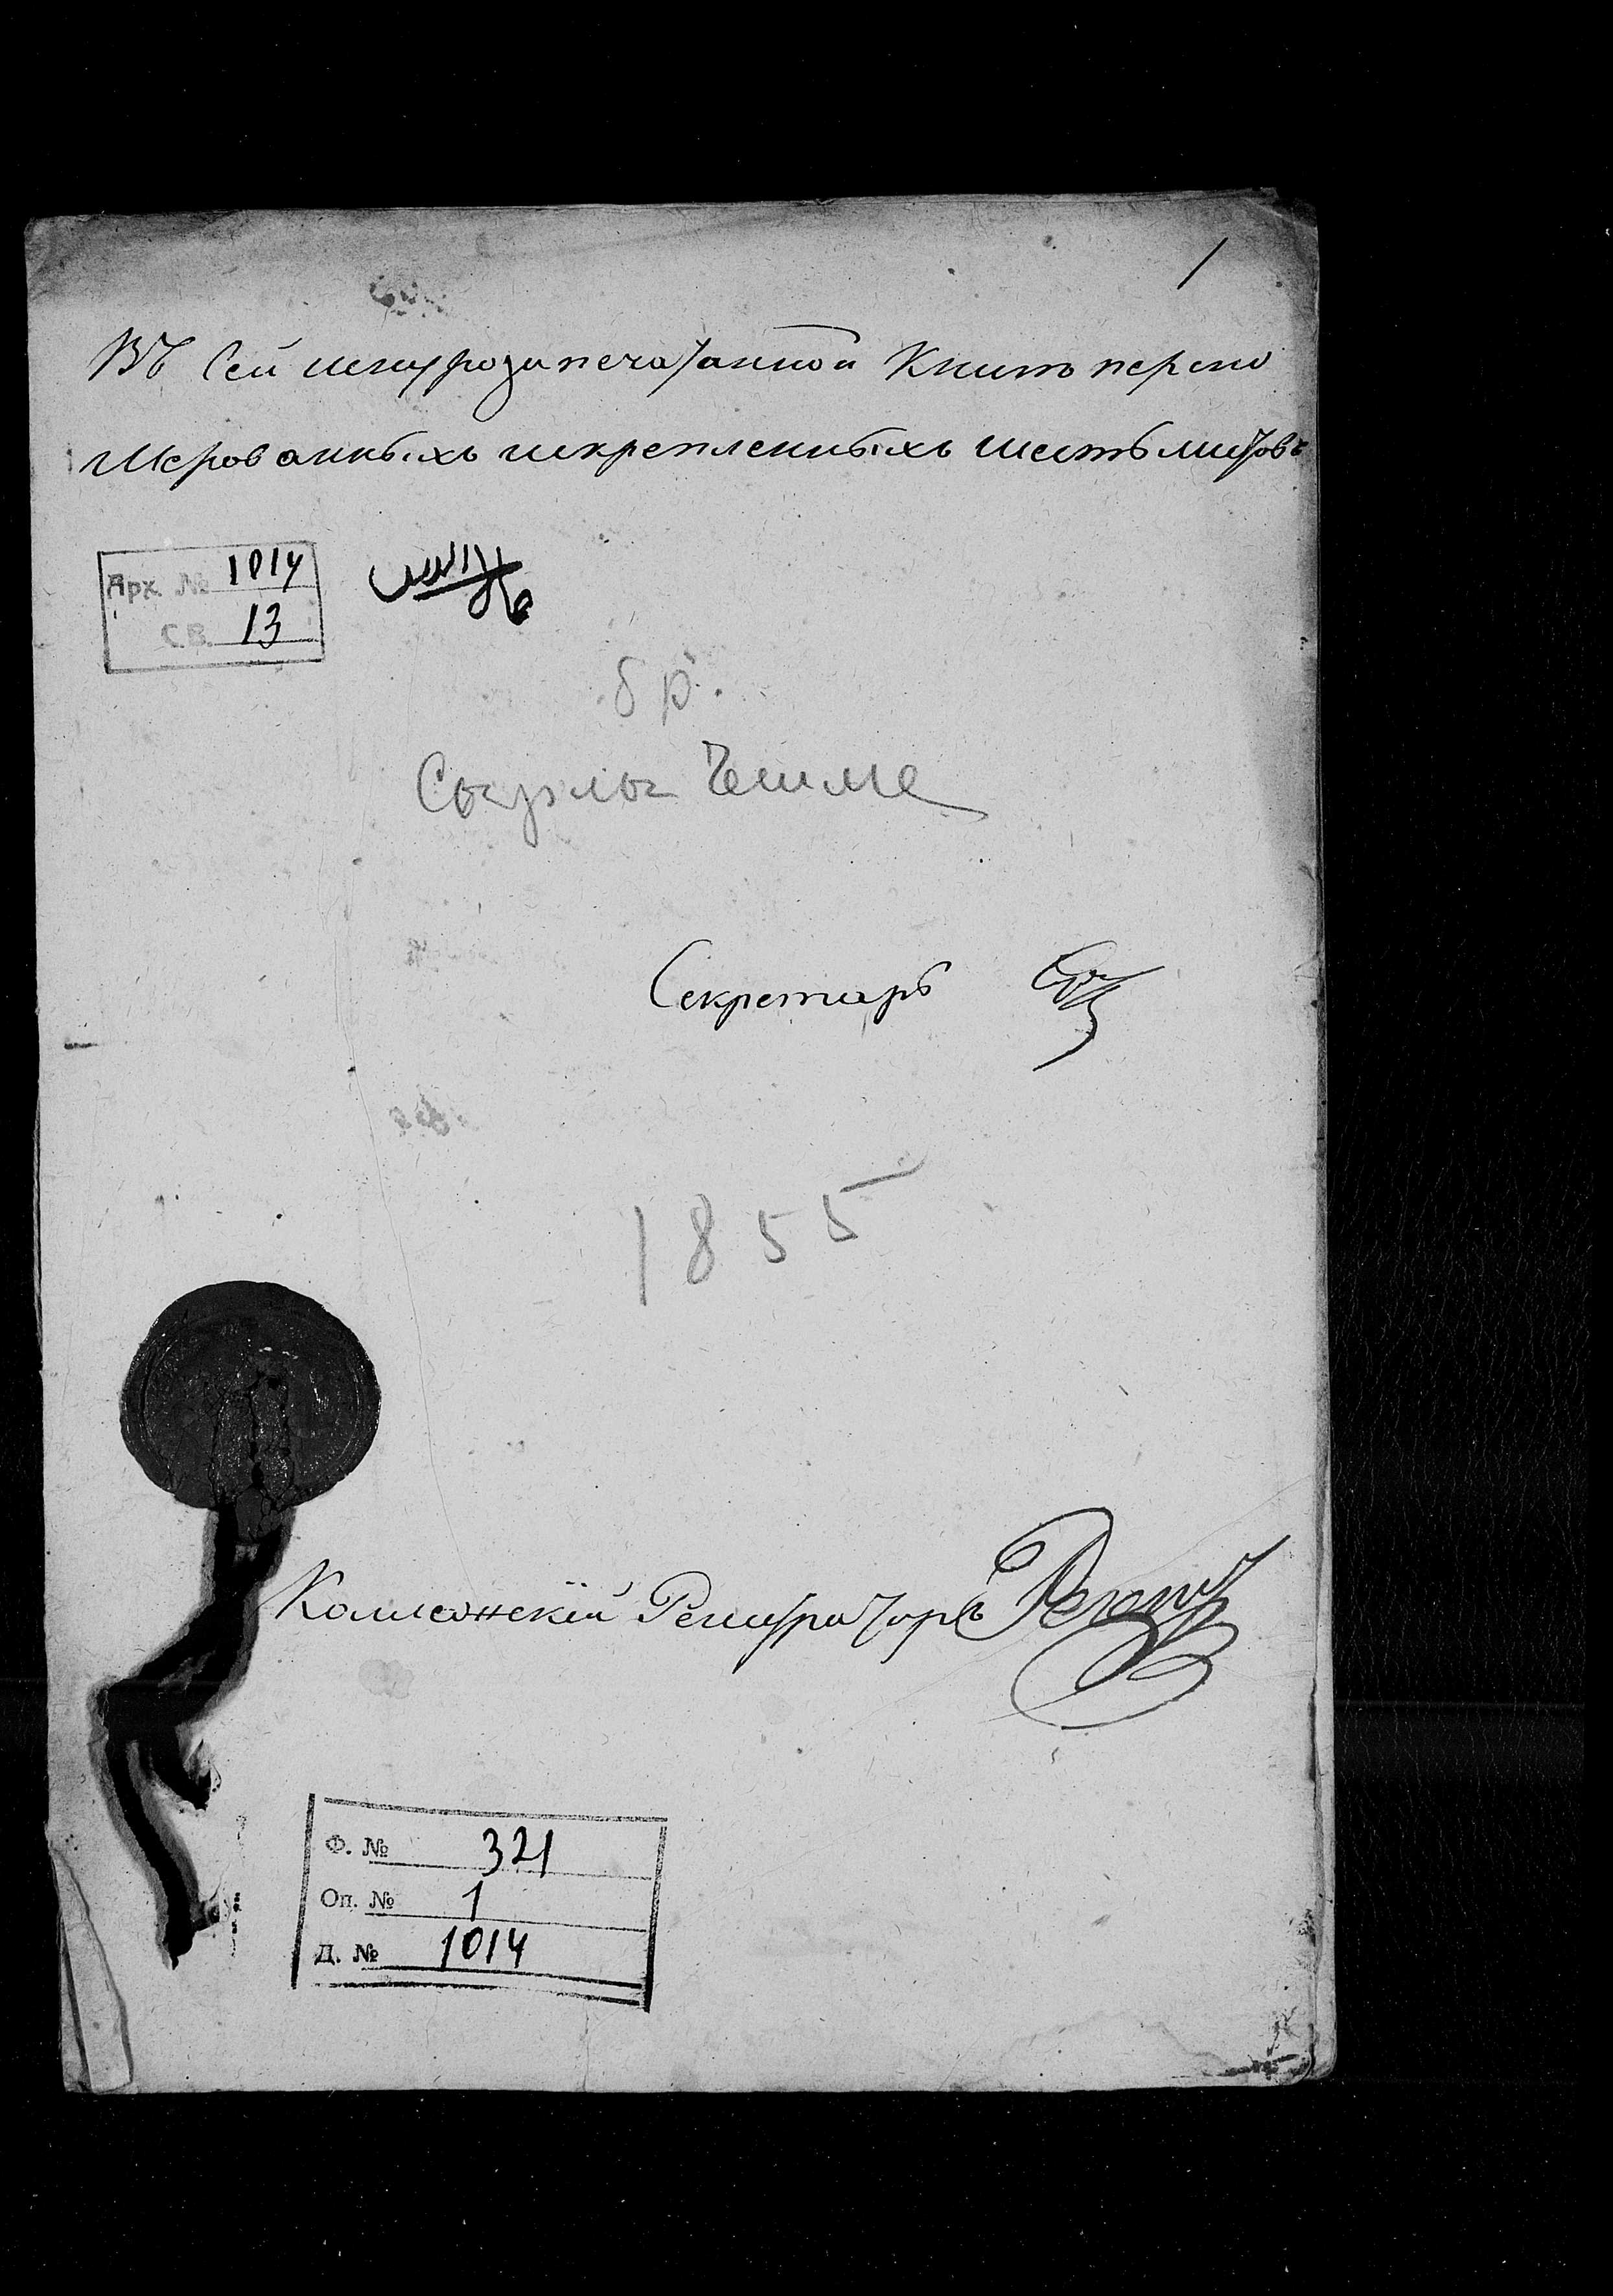 1
Въ Сей шнурозапечатанной Книгѣ перену
мерованныхъ искрепленныхъ шесть листовъ
Арх. № 1014
СВ. 13
бр.
Сыерлы Чешме
Секретарь
1855
Коллежскій Регистраторъ
Ф. № 321
Оп. № 1
Д. № 1014